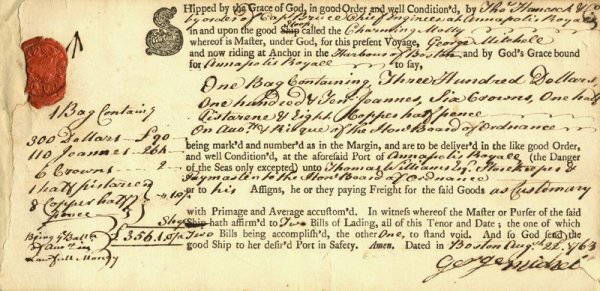 SHipped by the Grace of God, in good Order and well Condition'd, by Thos Hancock & Co
by order of Capt Bruce Chief Engineer at Annapolis Royal
in and upon the good Ship called the Charming Molly
whereof is Master, under God, for this present Voyage, George Mitchell
and now riding at Anchor in the Harbour of Boston and by God's Grace bound
for Annapolis Royall to say,
One Bag Containing Three Hundred Dollars
One hundred & Ten Joannes, Six Crowns, One half
Pistarene & Eight Copper half pence
On Accot & Risque of the Honl Board of Ordnance
being mark'd and number'd as in the Margin, and are to be deliver'd in the like good Order,
and well Condition'd, at the aforesaid Port of Annapolis Royall (the Danger
of the Seas only excepted) unto Thomas Williams Esq Storekeeper &
Paymaster to the Honl Board of Ordnance
or to his Assigns, he or they paying Freight for the said Goods as Customary
with Primage and Average accustom'd. In witness whereof the Master or Purser of the said
Ship hath affirm'd to Two Bills of Lading, all of this Tenor and Date; the one of which
Two Bills being accomplish'd, the other One, to stand void. And so God send the
good Ship to her desir'd Port in Safety. Amen. Dated in Boston Augt 22 1763
George Mitchel
1 Bag Containg
300 Dollars £90
110 Joannes 264
6 Crowns 2
1 half pistareen
8 Copper half
pence
Being ye Balla
of Accot in
Lawfull Money
£356